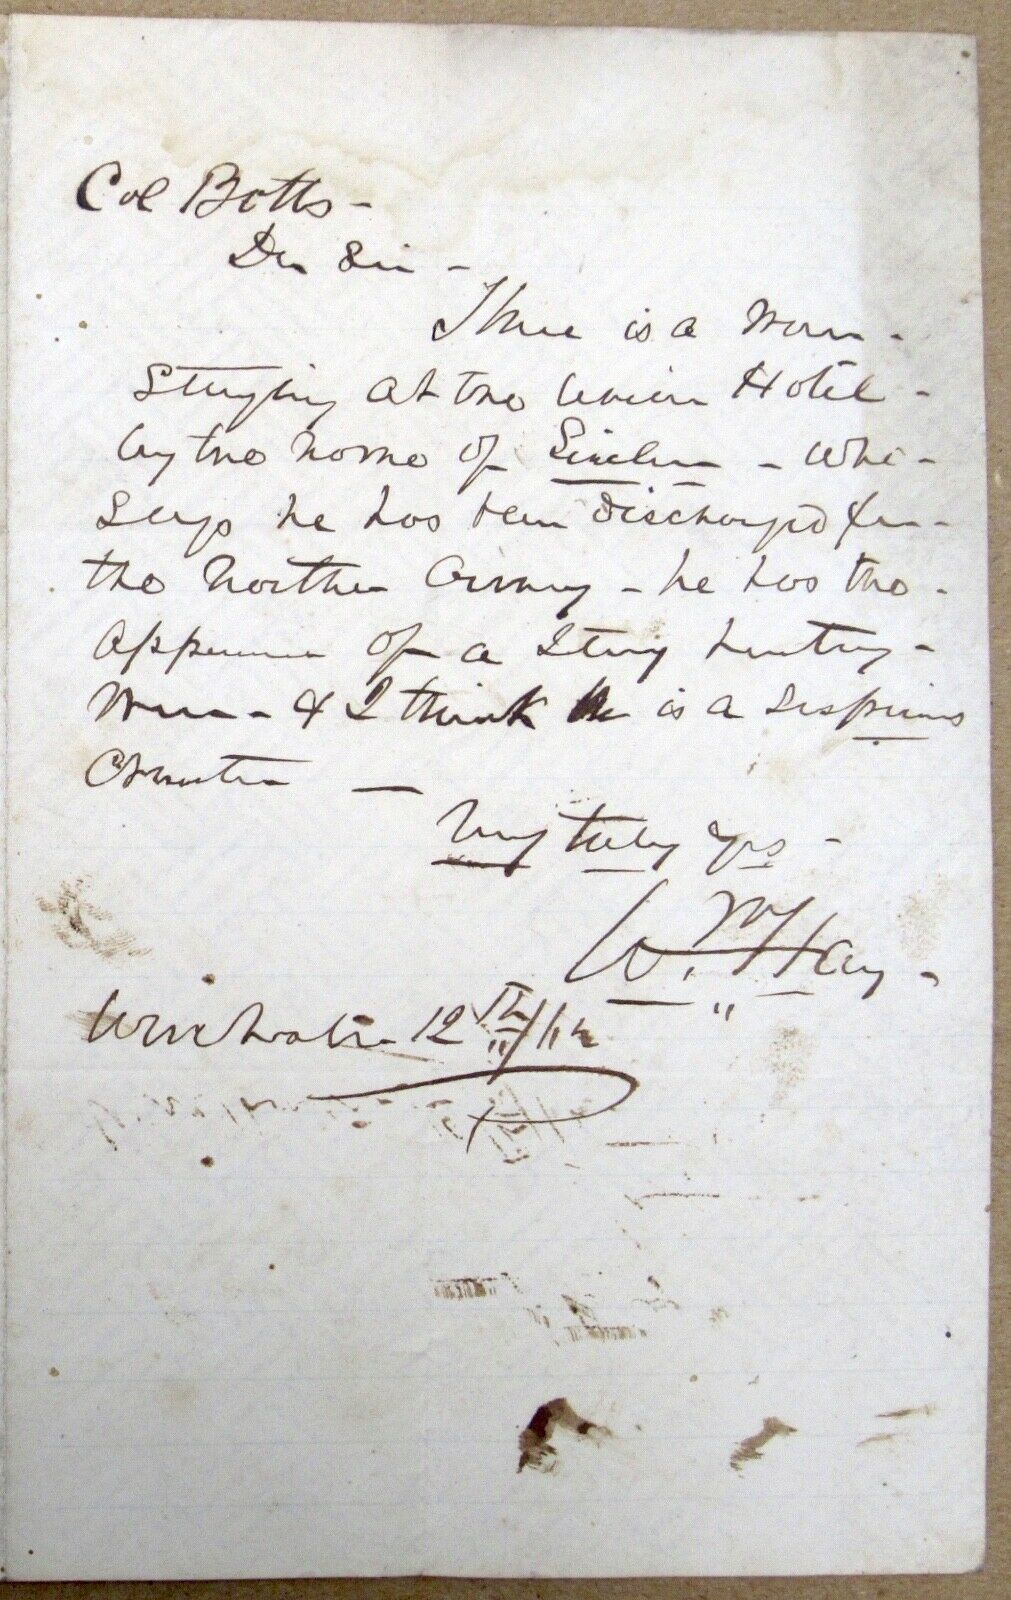 Col Botts -
Dr Sir -
There is a man -
Staying at the Union Hotel -
by the name of Sinclair - who -
Says he has been discharged from -
the Northern Army - he has the -
appearance of a Strong healthy -
man - & I think he is a Suspicious
Character —
Very truly yrs -
W. M Hay -
Winchester 12th